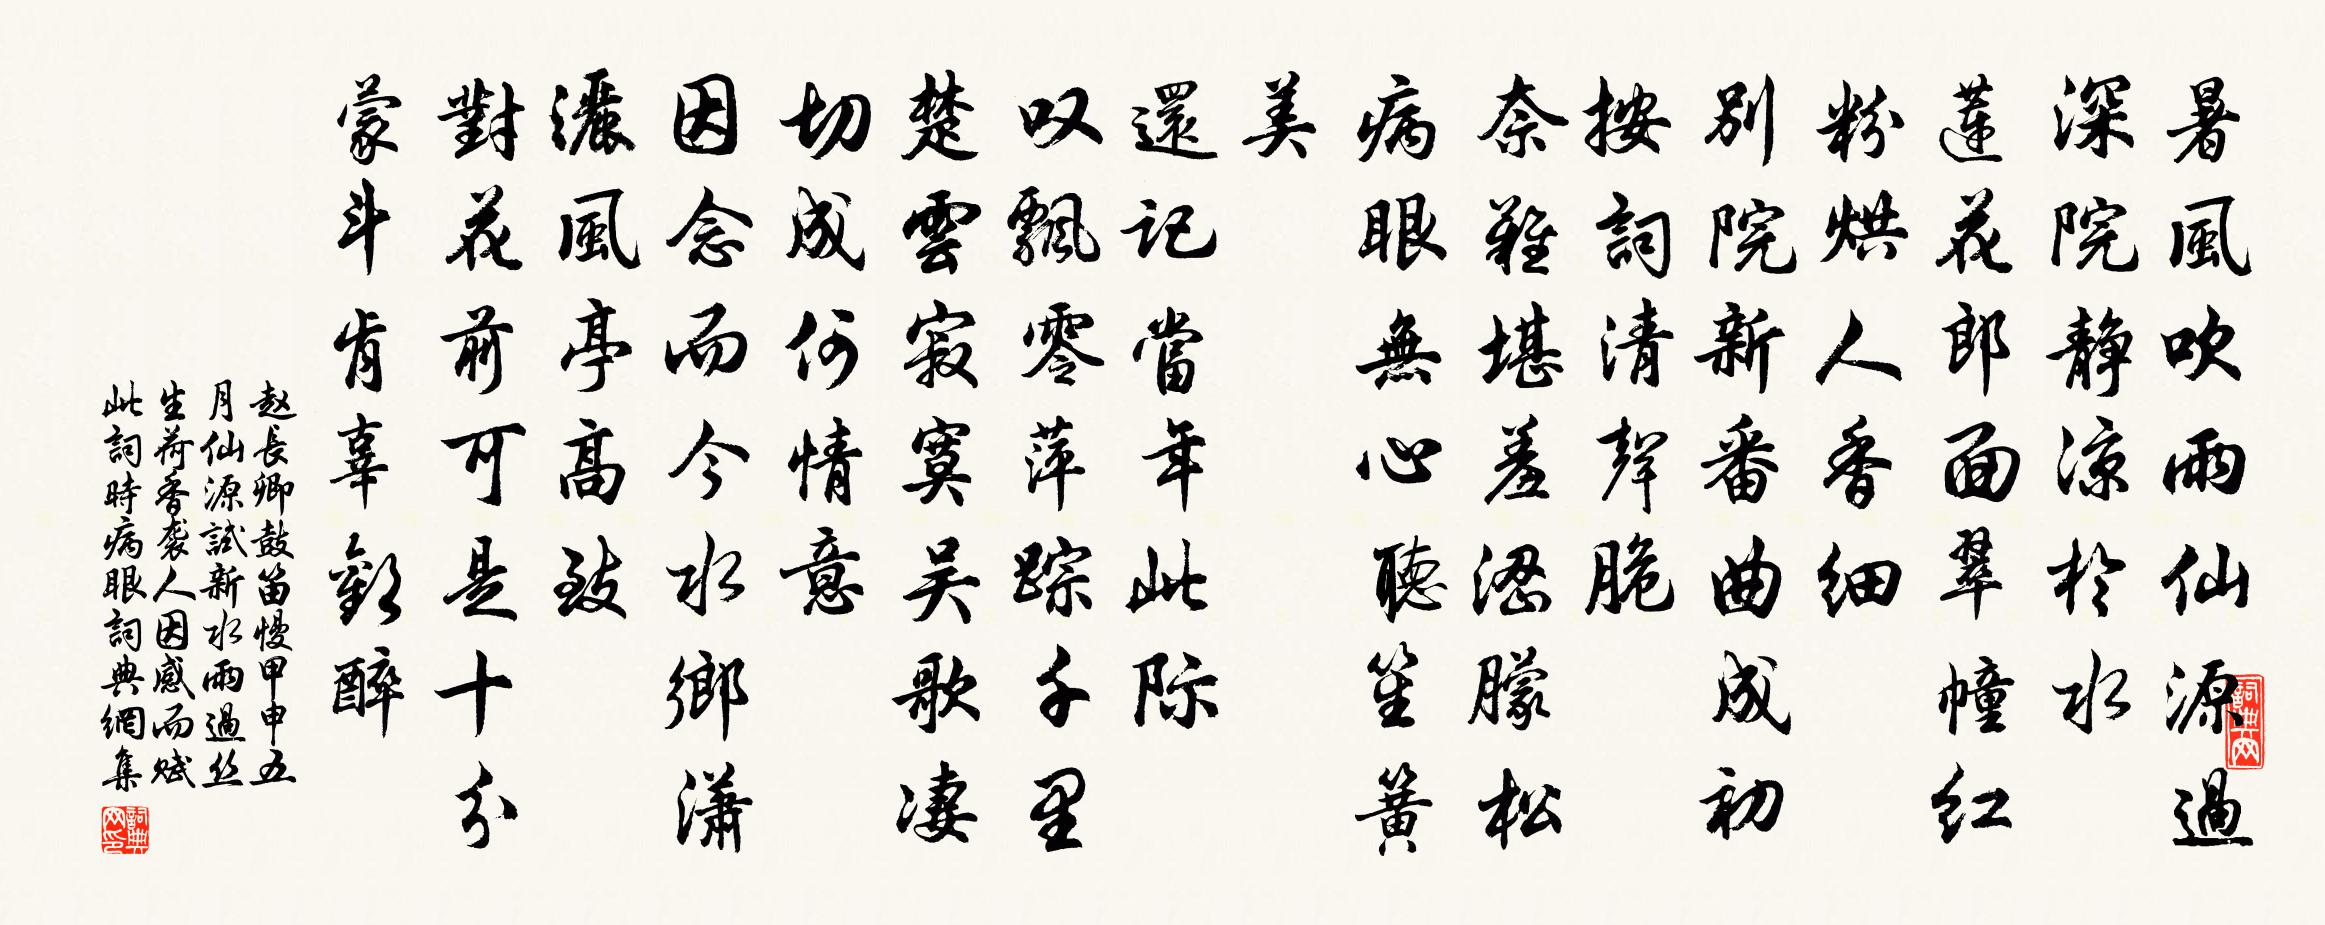 暑風吹雨仙源過
深院静涼於水
蓮花郎面翠幢红
粉烘人香细
别院新番曲成初
按詞清聲脆
奈難堪羞澀朦松
病眼無心聽笙簧
美
還記當年此际
叹飄零萍踪千里
楚雲寂寞吴歌凄
切成何情意
因念而今水鄉瀟
灑風亭高致
對花前可是十分
蒙斗肯辜歡醉
赵長卿鼓笛慢甲申五
月仙源試新水雨過丝
生荷香袭人因感而赋
此詞時病眼詞典網集
詞典网
詞典网印